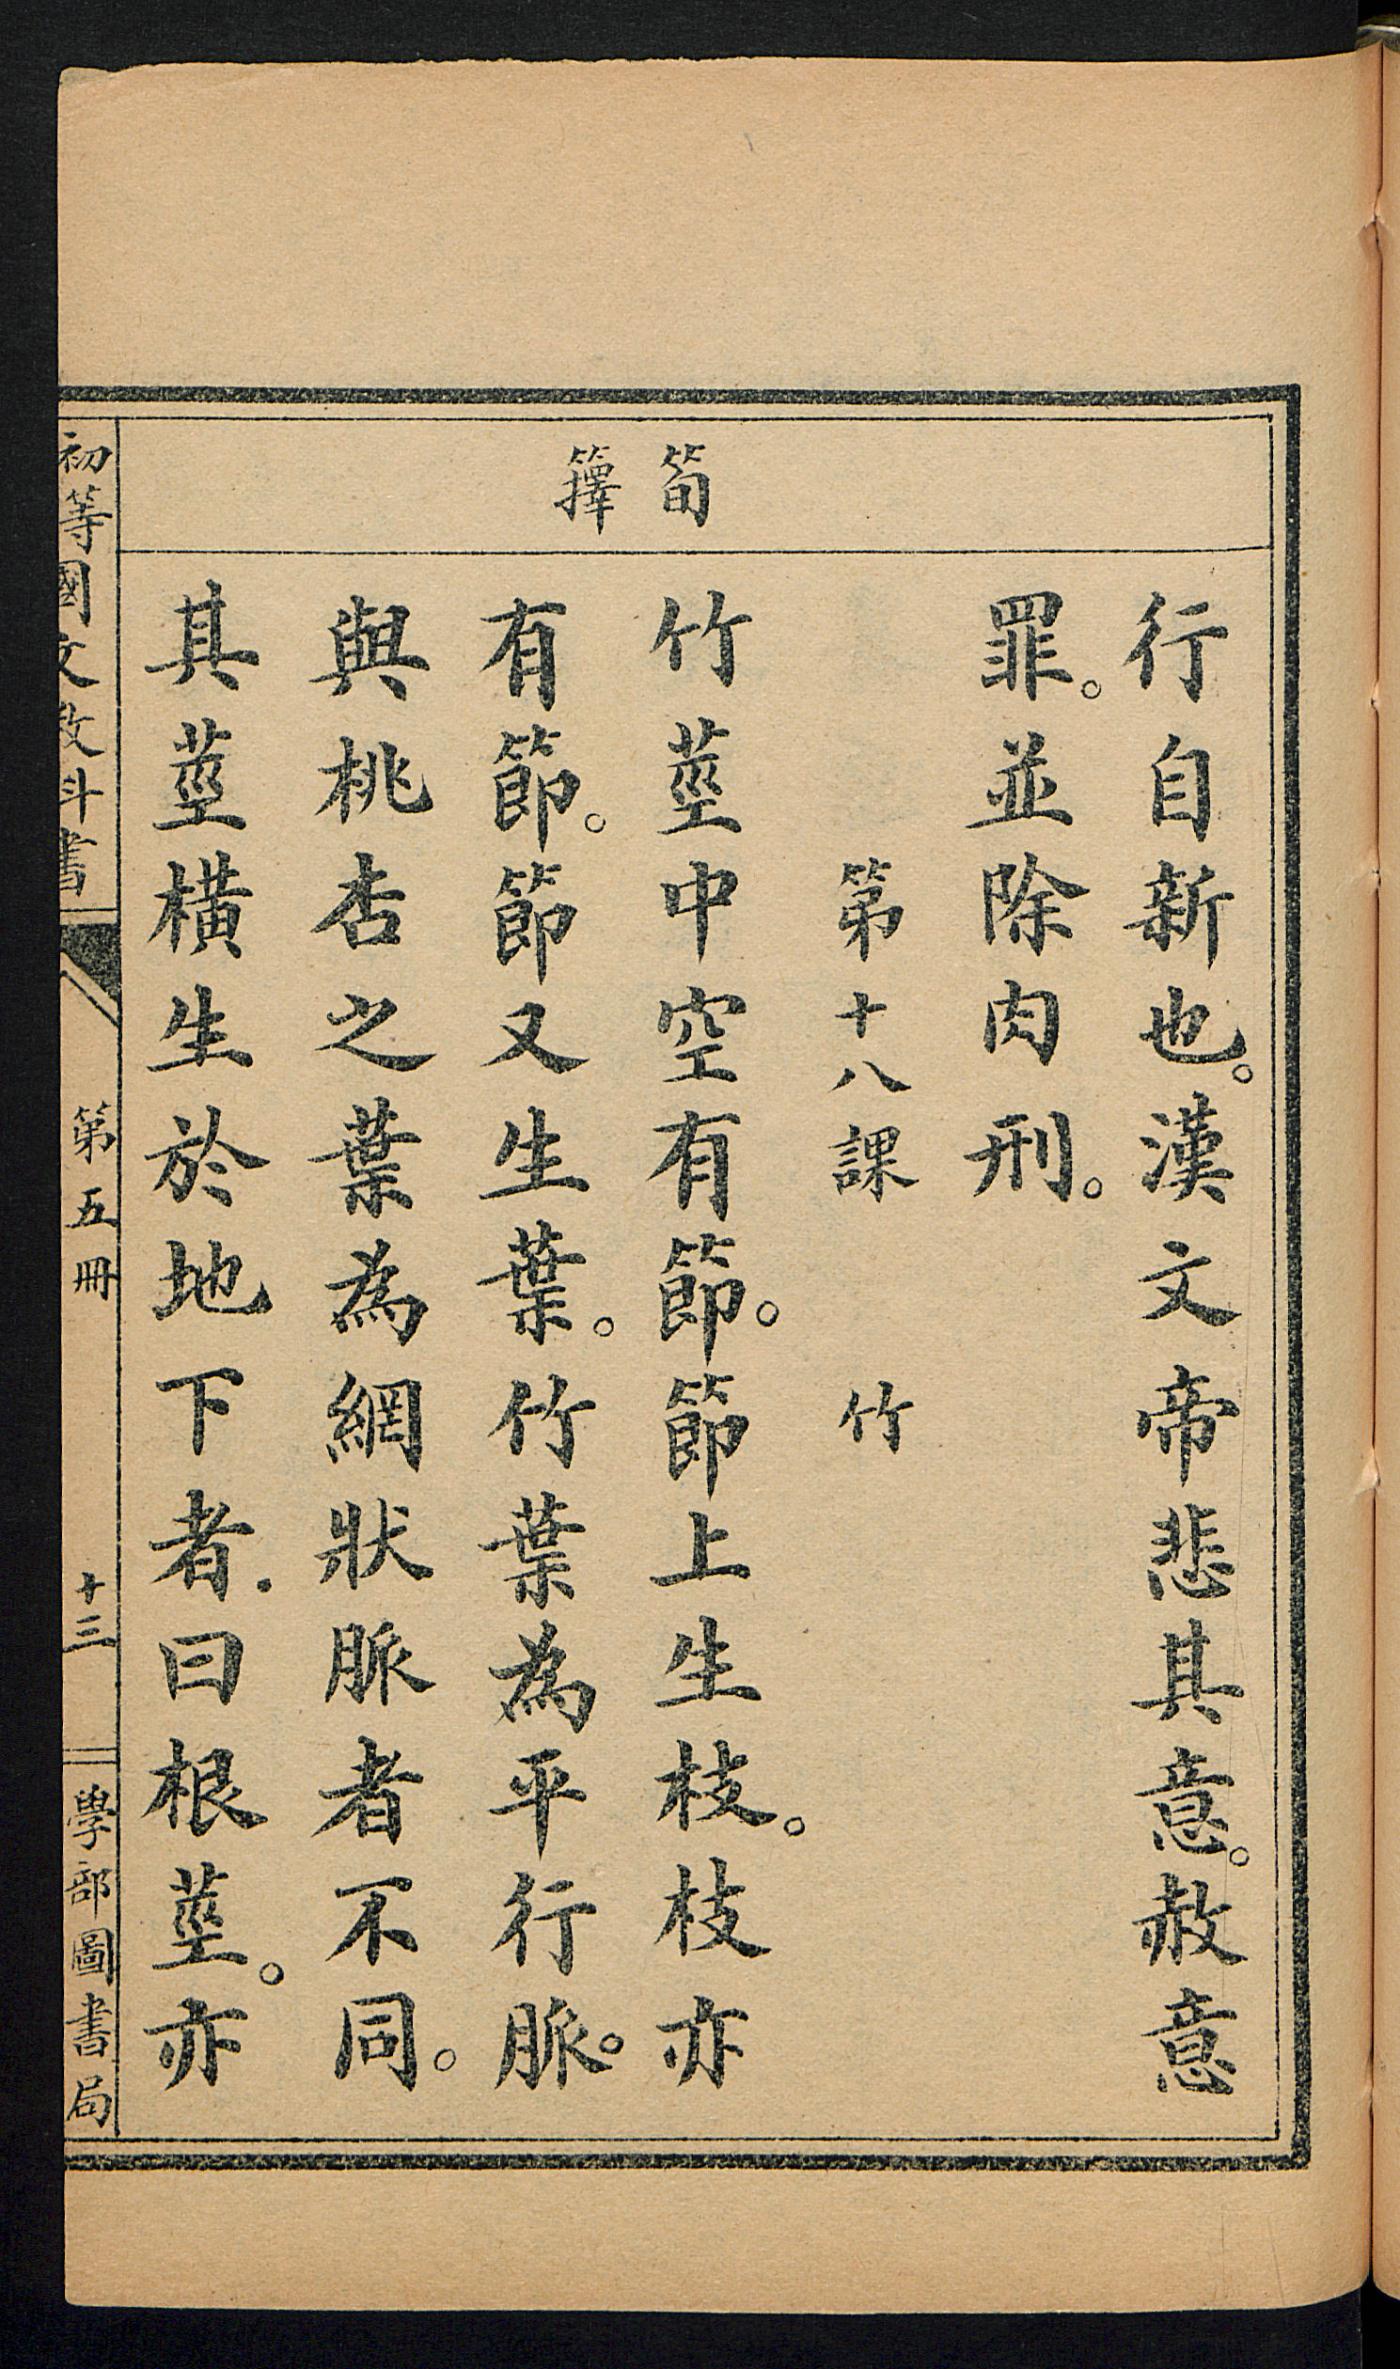 筍
籜
行自新也。漢文帝悲其意。赦意
罪。並除肉刑。
第十八課 竹
竹莖中空有節。節上生枝。枝亦
有節。節又生葉。竹葉為平行脈。
與桃杏之葉為網狀脈者不同。
其莖橫生於地下者．曰根莖。亦
初等國文教科書 第五冊 十三 學部圖書局